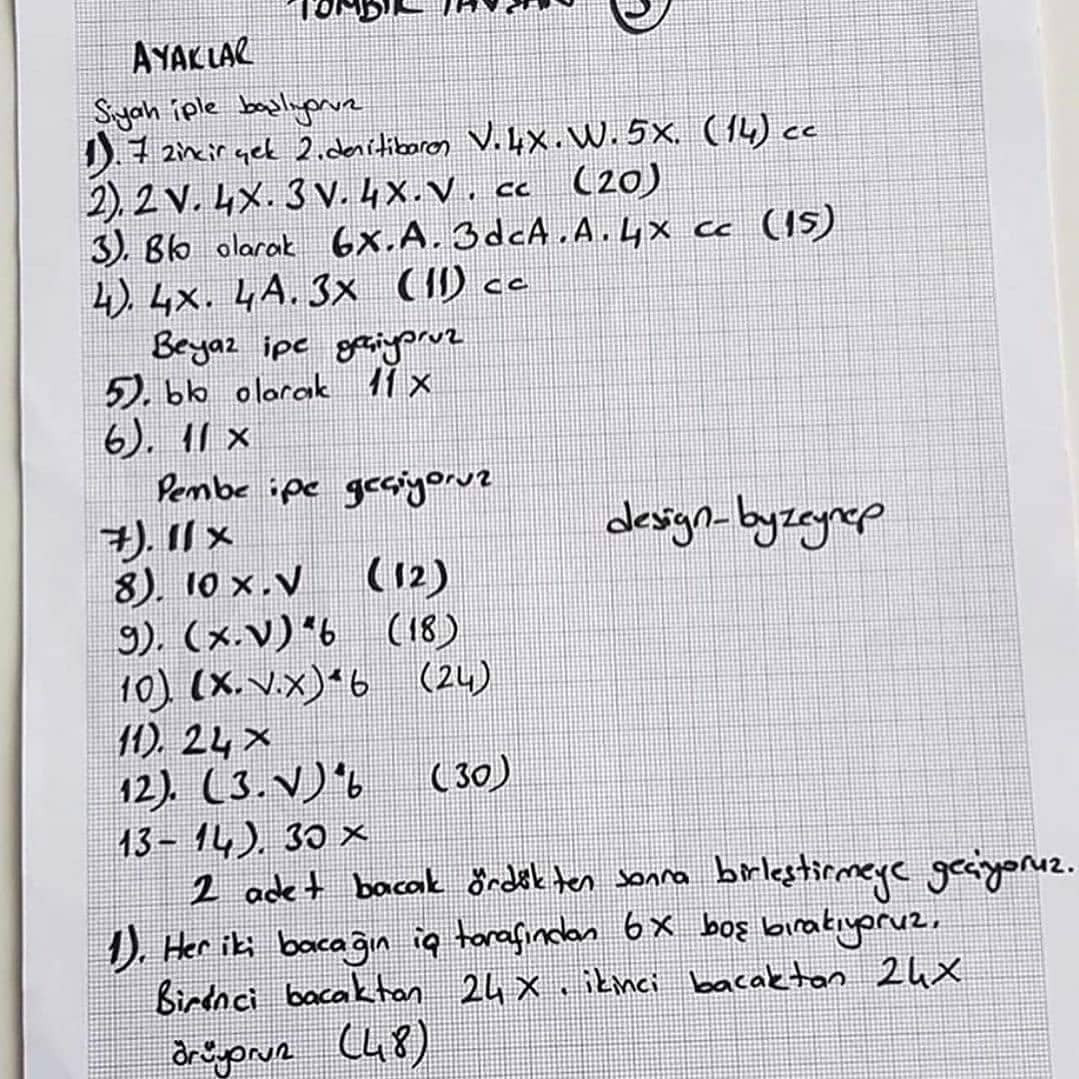 TOMBİK TAVŞAN 3
AYAKLAR
Siyah iple başlıyoruz
1). 7 zincir çek 2.den itibaren V.4X.W.5X. (14) cc
2). 2V. 4X. 3V. 4X. V. cc (20)
3). Blo olarak 6X.A. 3dcA.A.4X cc (15)
4). 4X. 4A. 3X (11) cc
Beyaz ipe geçiyoruz
5). blo olarak 11 X
6). 11 X
Pembe ipe geçiyoruz
7). 11 X
design-byzeynep
8). 10 X.V (12)
9). (X.V)*6 (18)
10). (X.V.X)*6 (24)
11). 24 X
12). (3.V)*6 (30)
13- 14). 30 X
2 adet bacak ördükten sonra birleştirmeye geçiyoruz.
1). Her iki bacağın iç tarafından 6X boş bırakıyoruz.
Birinci bacaktan 24 X. ikinci bacaktan 24X
örüyoruz (48)